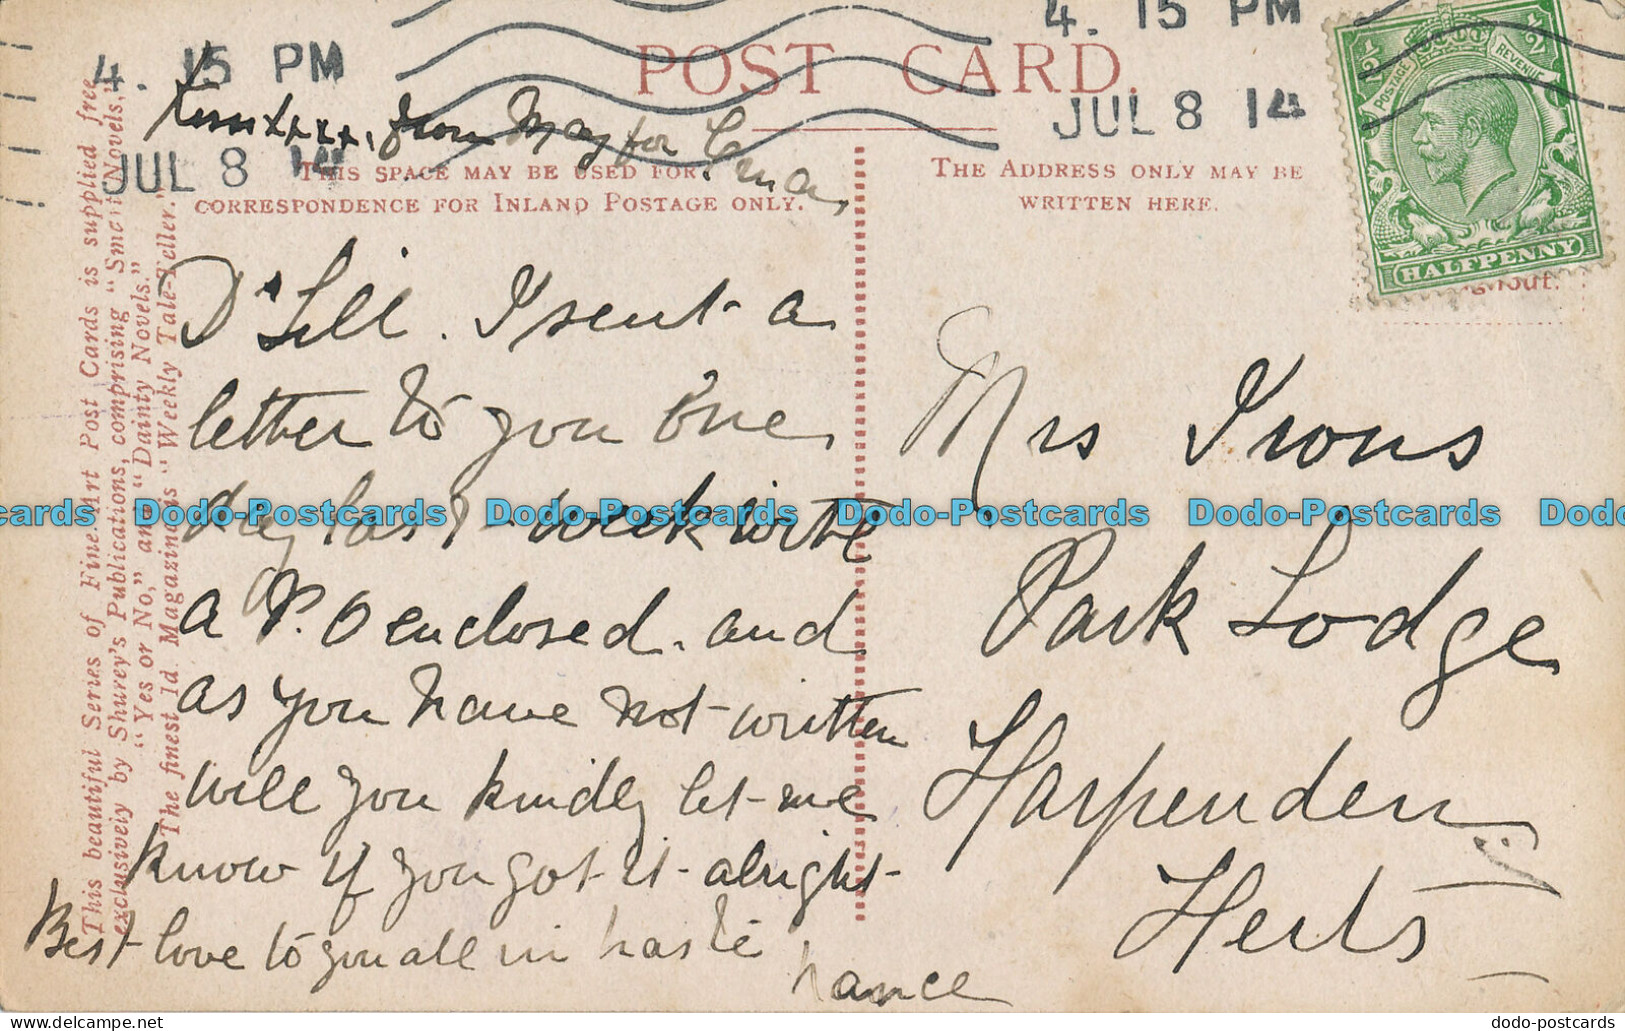 4. 15 PM
JUL 8 14
4. 15 PM
JUL 8 14
POST CARD.
from May for
THIS SPACE MAY BE USED FOR
CORRESPONDENCE FOR INLAND POSTAGE ONLY.
THE ADDRESS ONLY MAY BE
WRITTEN HERE.
POSTAGE REVENUE
1/2 1/2
HALFPENNY
This beautiful Series of Fine Art Post Cards is supplied free
exclusively by Shurey's Publications, comprising "Smart Novels,"
"Yes or No," and "Dainty Novels."
The finest 1d. Magazine is "Weekly Tale-Teller."
Dr Lill. I sent a
letter to you one
day last week with
a P.O enclosed. and
as you have not written
will you kindly let me
know if you got it alright
Best love to you all in haste
Nance
Mrs Irons
Park Lodge
Harpenden
Herts
Dodo-Postcards Dodo-Postcards Dodo-Postcards Dodo-Postcards
dodo-postcards.com